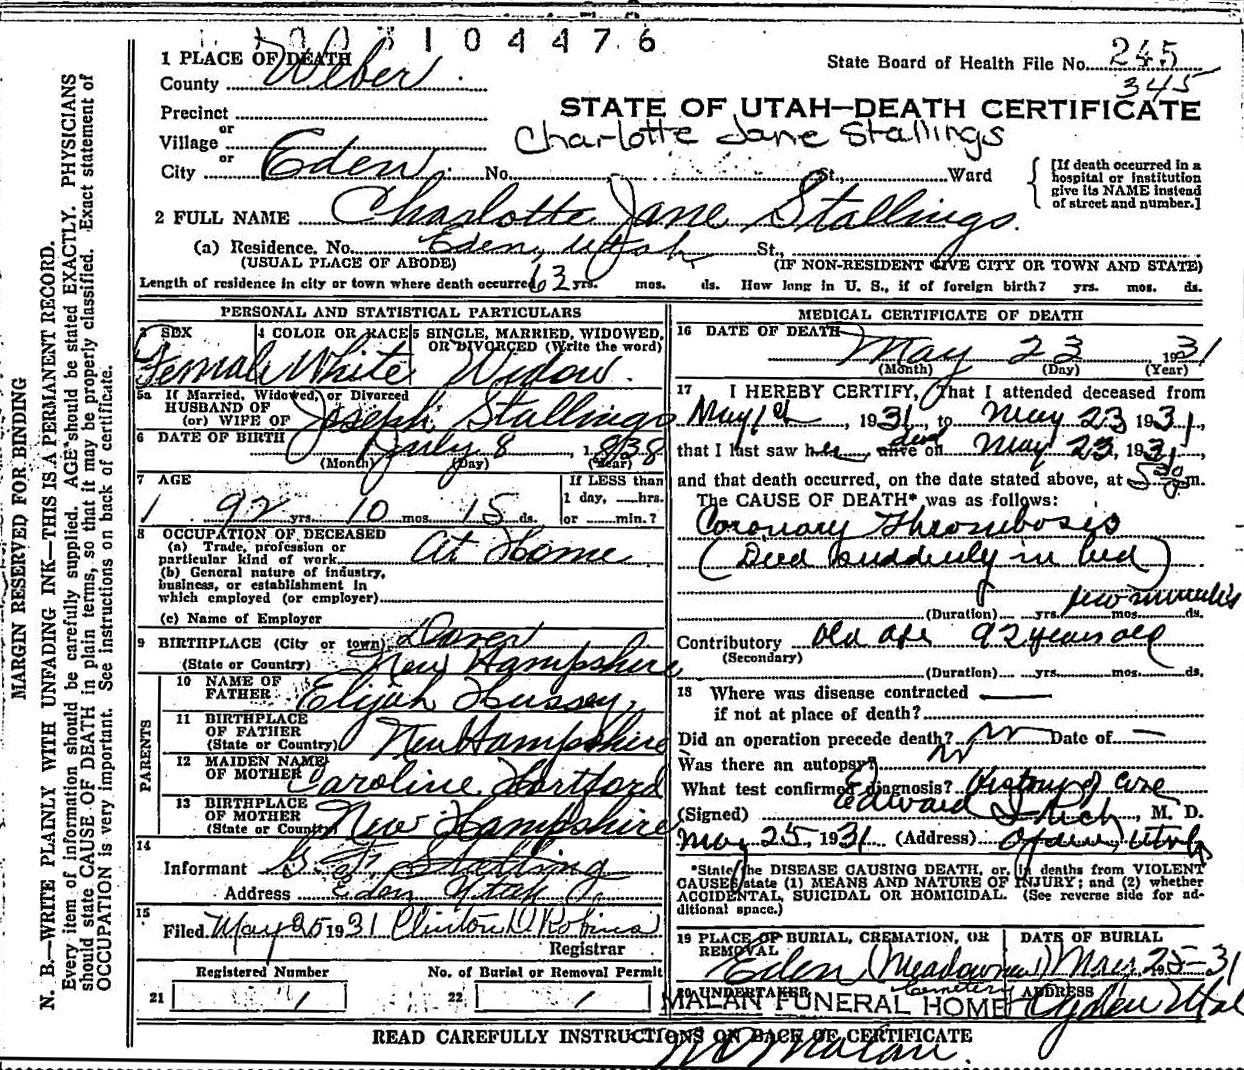 104476
1 PLACE OF DEATH
County Weber
State Board of Health File No. 245
345
Precinct
STATE OF UTAH—DEATH CERTIFICATE
or
Village
Charlotte Jane Stallings
or
City Eden No. St., Ward
[If death occurred in a hospital or institution give its NAME instead of street and number.]
2 FULL NAME Charlotte Jane Stallings.
(a) Residence. No. Eden, Utah St.,
(USUAL PLACE OF ABODE) (IF NON-RESIDENT GIVE CITY OR TOWN AND STATE)
Length of residence in city or town where death occurred 63 yrs. mos. ds. How long in U. S., if of foreign birth? yrs. mos. ds.
PERSONAL AND STATISTICAL PARTICULARS
3 SEX 4 COLOR OR RACE 5 SINGLE, MARRIED, WIDOWED, OR DIVORCED (Write the word)
Female White Widow.
5a If Married, Widowed, or Divorced
HUSBAND OF
(or) WIFE OF Joseph Stallings
6 DATE OF BIRTH 8, 1838
(Month) (Day) (Year)
7 AGE If LESS than
1 day, hrs.
92 yrs. 10 mos. 15 ds. or min.?
8 OCCUPATION OF DECEASED
(a) Trade, profession or
particular kind of work At Home
(b) General nature of industry,
business, or establishment in
which employed (or employer)
(c) Name of Employer
9 BIRTHPLACE (City or town) Dover
(State or Country) New Hampshire
PARENTS
10 NAME OF
FATHER Elijah Hussey,
11 BIRTHPLACE
OF FATHER
(State or Country) New Hampshire
12 MAIDEN NAME
OF MOTHER Caroline Hortford
13 BIRTHPLACE
OF MOTHER
(State or Country) New Hampshire
14
Informant Stalling
Address Eden Utah
15
Filed May 25 1931 Clinton D. Robins
Registrar
Registered Number No. of Burial or Removal Permit
21 1 22 1
MEDICAL CERTIFICATE OF DEATH
16 DATE OF DEATH
May 23, 1931
(Month) (Day) (Year)
17 I HEREBY CERTIFY, That I attended deceased from
May 1st, 1931, to May 23 1931,
that I last saw her alive dead on May 23, 1931,
and that death occurred, on the date stated above, at 530 p m.
The CAUSE OF DEATH* was as follows:
Coronary Thrombosis
(Died suddenly in bed)
few minutes
(Duration) yrs. mos. ds.
Contributory Old age 92 years old
(Secondary)
(Duration) yrs. mos. ds.
18 Where was disease contracted —
if not at place of death?
Did an operation precede death? no Date of —
Was there an autopsy? no
What test confirmed diagnosis? History of case
(Signed) Edward I Rich, M. D.
May 25, 1931 (Address) Ogden, Utah
*State the DISEASE CAUSING DEATH, or, in deaths from VIOLENT
CAUSES, state (1) MEANS AND NATURE OF INJURY; and (2) whether
ACCIDENTAL, SUICIDAL OR HOMICIDAL. (See reverse side for additional space.)
19 PLACE OF BURIAL, CREMATION, OR REMOVAL DATE OF BURIAL
Eden (Meadowview) May 25-31
Cemetery
20 UNDERTAKER ADDRESS
MALAN FUNERAL HOME Ogden Utah
READ CAREFULLY INSTRUCTIONS ON BACK OF CERTIFICATE
Malan.
MARGIN RESERVED FOR BINDING
N. B.—WRITE PLAINLY WITH UNFADING INK—THIS IS A PERMANENT RECORD.
Every item of information should be carefully supplied. AGE should be stated EXACTLY. PHYSICIANS
should state CAUSE OF DEATH in plain terms, so that it may be properly classified. Exact statement of
OCCUPATION is very important. See instructions on back of certificate.